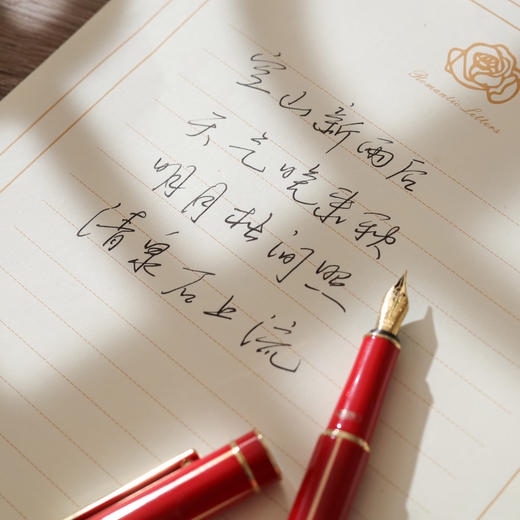 Romantic Letters
空山新雨后
天气晚来秋
明月松间照
清泉石上流